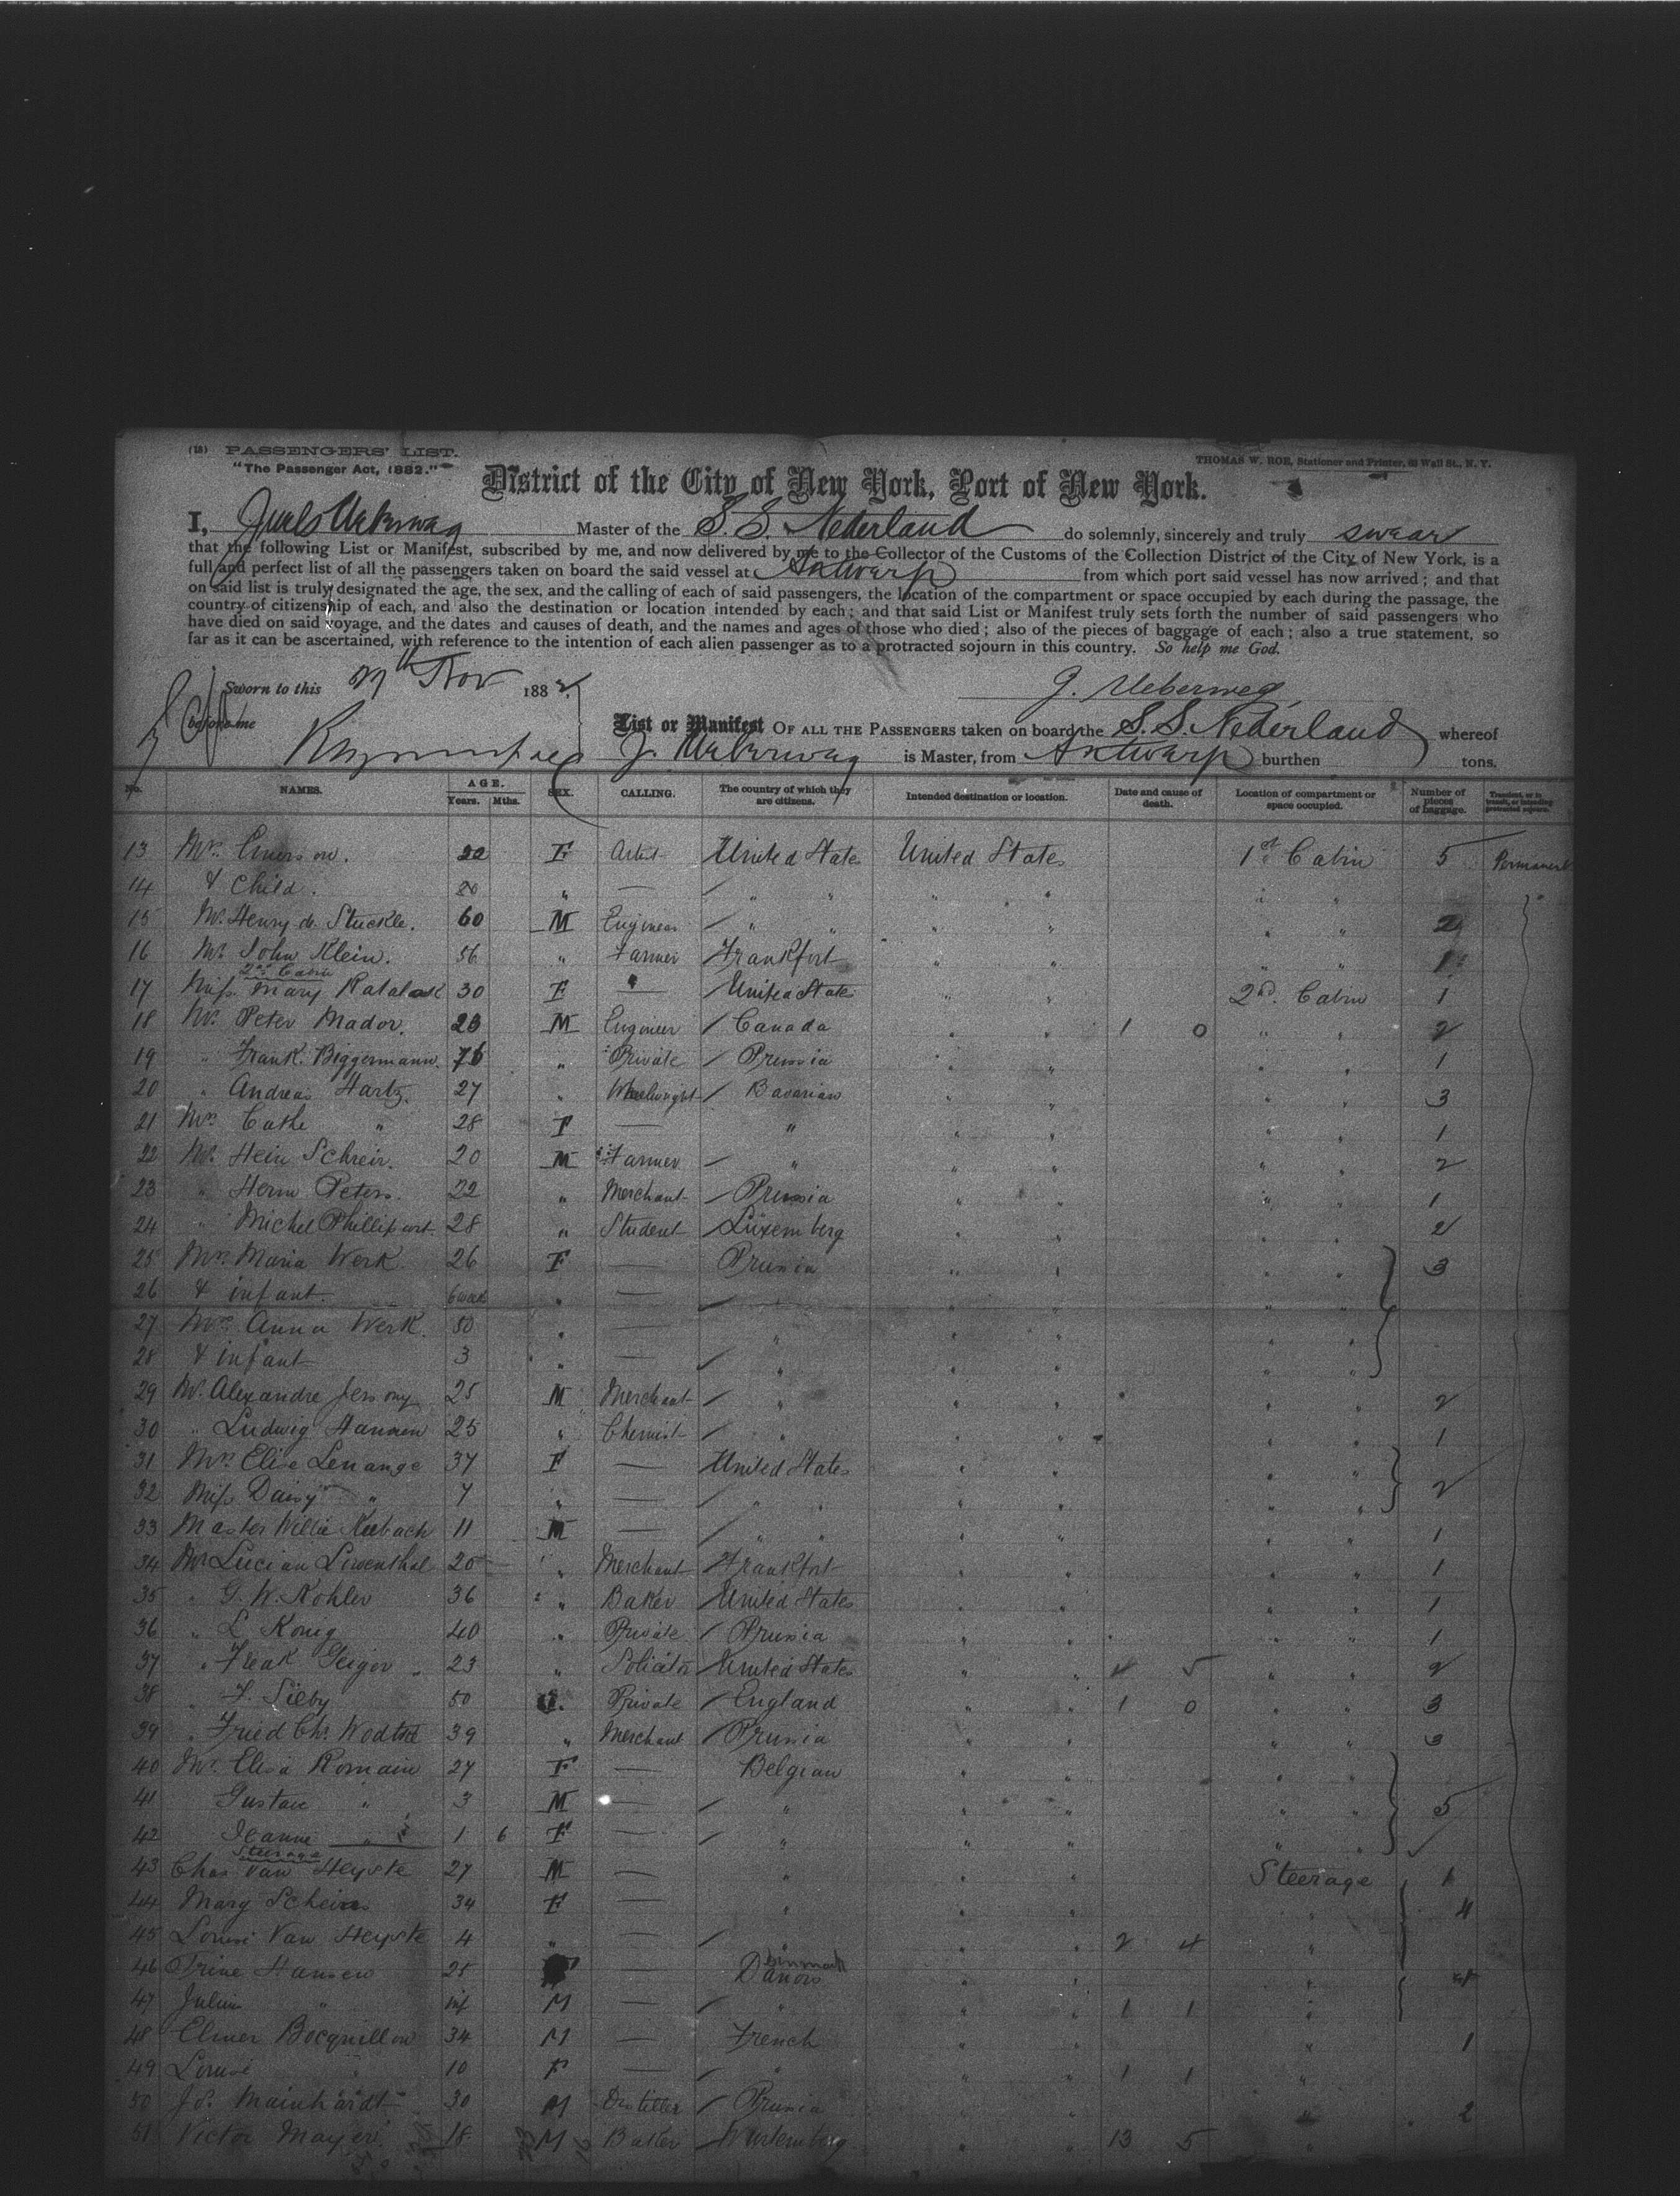 (18) PASSENGERS' LIST.
"The Passenger Act, 1882."
THOMAS W. ROE, Stationer and Printer, Wall St., N. Y.
District of the City of New York, Port of New York.
I, Master of the S. S. Nederland do solemnly, sincerely and truly swear
that the following List or Manifest, subscribed by me, and now delivered by me to the Collector of the Customs of the Collection District of the City of New York, is a
full and perfect list of all the passengers taken on board the said vessel at Antwerp from which port said vessel has now arrived; and that
on said list is truly designated the age, the sex, and the calling of each of said passengers, the location of the compartment or space occupied by each during the passage, the
country of citizenship of each, and also the destination or location intended by each; and that said List or Manifest truly sets forth the number of said passengers who
have died on said voyage, and the dates and causes of death, and the names and ages of those who died; also of the pieces of baggage of each; also a true statement, so
far as it can be ascertained, with reference to the intention of each alien passenger as to a protracted sojourn in this country. So help me God.
Sworn to this Nov 188 J. Ueberweg
before me
List or Manifest OF ALL THE PASSENGERS taken on board the S. S. Nederland whereof
J. is Master, from Antwerp burthen tons.
No. NAMES. AGE. Years. Mths. SEX. CALLING. The country of which they are citizens. Intended destination or location. Date and cause of death. Location of compartment or space occupied. Number of pieces of baggage. Transient, or in transit, or intending protracted sojourn.
13 Mrs. Emerson. 22 F Artist United State United States 1st Cabin 5 Permanent
14 & Child. " — " " " " " "
15 Mr. Henry de Stuckle. 60 M Engineer " " " " " " 2
16 Mr John Klein. 56 " Farmer Frankfort " " " " 1
2nd Cabin
17 Miss. Mary 30 F — United States " " 2nd. Cabin 1
18 Mr. Peter Mador. 23 M Engineer Canada " " 1 0 " " 2
19 " Frank. Biggermann. 76 " Private Prussia " " " " 1
20 " Andreas Hartz. 27 " Wheelwright Bavarian " " " " 3
21 Mrs Cathe " 28 F — " " " " " 1
22 Mr. Hein Schreir. 20 M Farmer " " " " " 2
23 " Herm Peters. 22 " Merchant Prussia " " " " 1
24 " Michel 28 " Student Luxemberg " " " " 2
25 Mrs. Maria Werk 26 F — Prussia " " " " 3
26 & infant. 6 week " — " " " "
27 Mrs Anna Werk. 50 " — " " " " "
28 & infant 3 " — " " " " "
29 Mr. Alexandre 25 M Merchant " " " " " 2
30 " Ludwig Hannen 25 " Chemist " " " " " 1
31 Mrs. Elise Lenange 37 F — United States " " " "
32 Miss Daisy " 7 " — " " " " " " 2
33 Master Willie 11 M — " " " " " " 1
34 Mr Lucian Lowenthal 20 " Merchant Frankfort " " " " 1
35 " G. W. Kohler 36 " Baker United States " " " " 1
36 " L. Konig 40 " Private Prussia " " " " 1
37 " Geiger 23 " United States " " 5 " " 2
38 " F. Silby 50 Private England " " 1 0 " " 3
39 " Fried Chs. 39 " Merchant Prussia " " " " 3
40 Elisa Romain 27 F — Belgian " " " "
41 Gustave " 3 M — " " " " " 5
42 Jeanne " 1 6 F — " " " " "
Steerage
43 Chas Van Heyste 27 M — " " " Steerage 1
44 Mary 34 F — " " " " 4
45 Louise Van Heyste 4 " — " " " 2 4 "
46 Trine Hansen 25 — Denmark " " "
47 " inf M — " " " 1 1 "
48 Elmer Bocquillon 34 M — French " " " 1
49 Louise " 10 F — " " " 1 1 "
50 Js. Mainhardt 30 M Distiller Prussia " " " 2
51 Victor Mayer 18 M Baker Wurtemberg " " 13 5 "